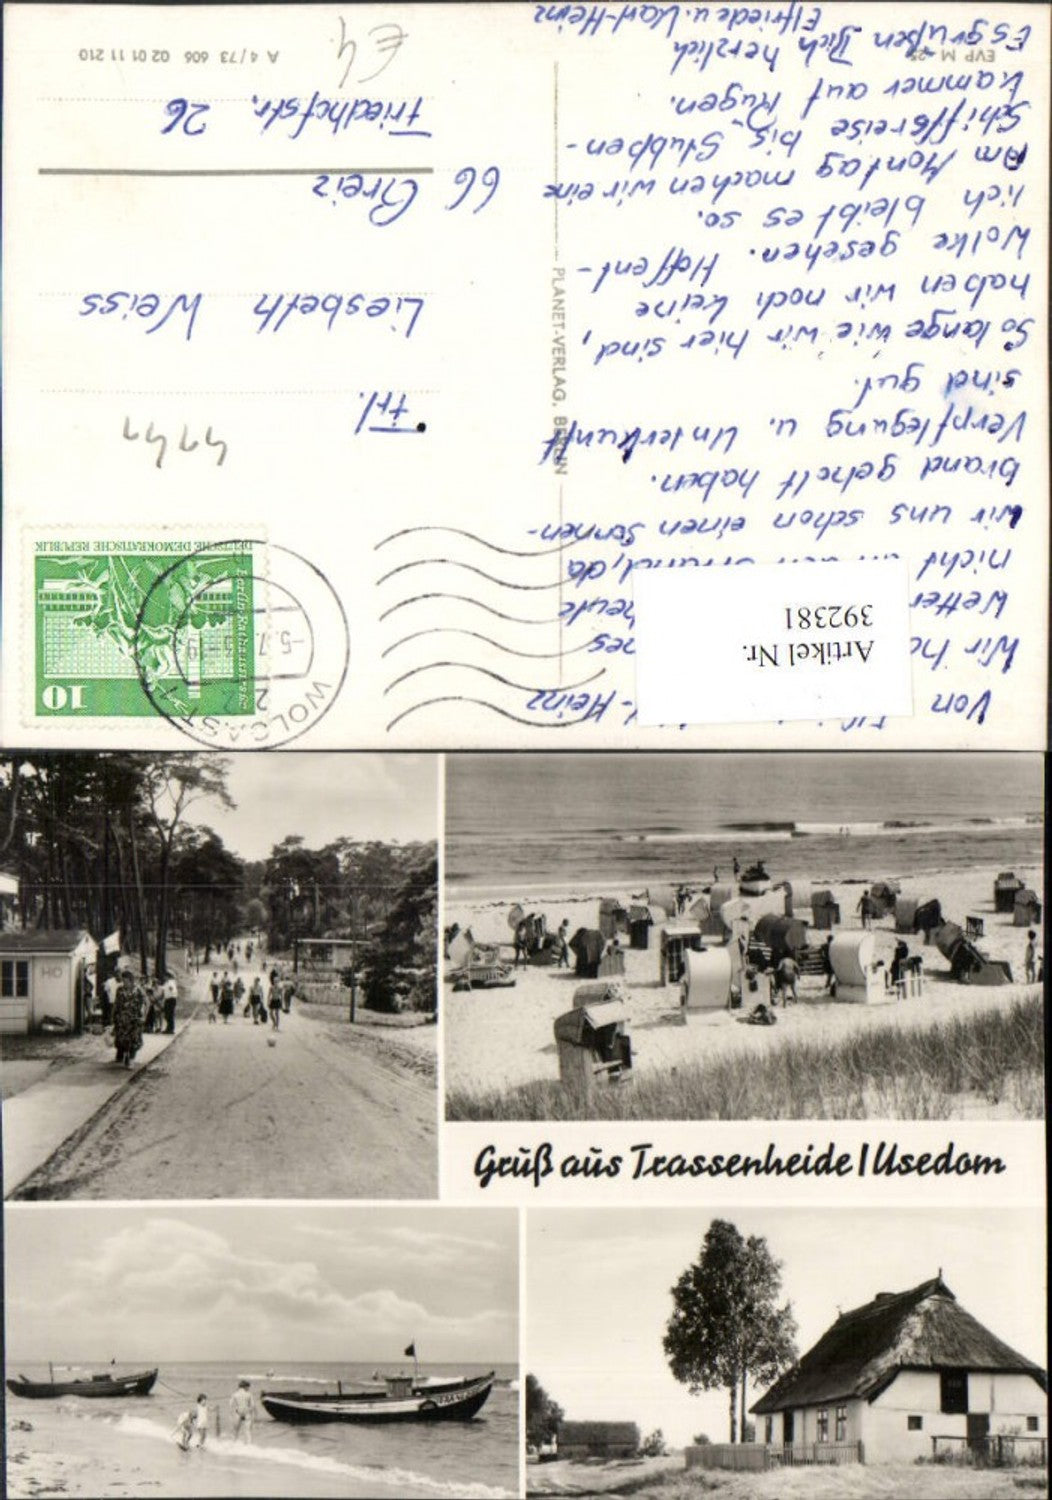 Von Elfriede u. Karl-Heinz
Wir ha es
Wetter heute
nicht an den Strand, da
wir uns schon einen Sonnen-
brand geholt haben.
Verpflegung u. Unterkunft
sind gut.
So lange wie wir hier sind,
haben wir noch keine
Wolke gesehen. Hoffent-
lich bleibt es so.
Am Montag machen wir eine
Schiffsreise bis Stubben-
kammer auf Rügen.
Es grüßen Dich herzlich
Elfriede u. Karl-Heinz
EVP M -25
Artikel Nr.
392381
PLANET-VERLAG, BERLIN
WOLGAST 1
-5.7.
10
Berlin-Rathausstraße
DEUTSCHE DEMOKRATISCHE REPUBLIK
Frl.
Liesbeth Weiss
66 Greiz
Friedhofstr. 26
A 4/73 606 02 01 11 210
€4
HO
Gruß aus Trassenheide/Usedom